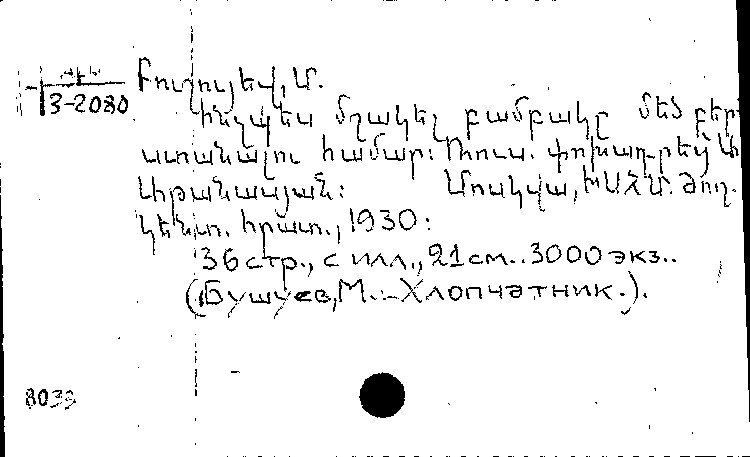 3-2080
Բուշույեվ, Մ.
Ինչպես մշակել բամբակը մեծ բերք
ստանալու համար: Ռուս. փոխադրեց Լ.
Լիթանասյան: Մոսկվա, ԽՍՀՄ. Ժող.
կենտ. հրատ., 1930:
36 стр., с илл., 21 см.. 3000 экз..
(Бушуев, М. – Хлопчатник.).
8033